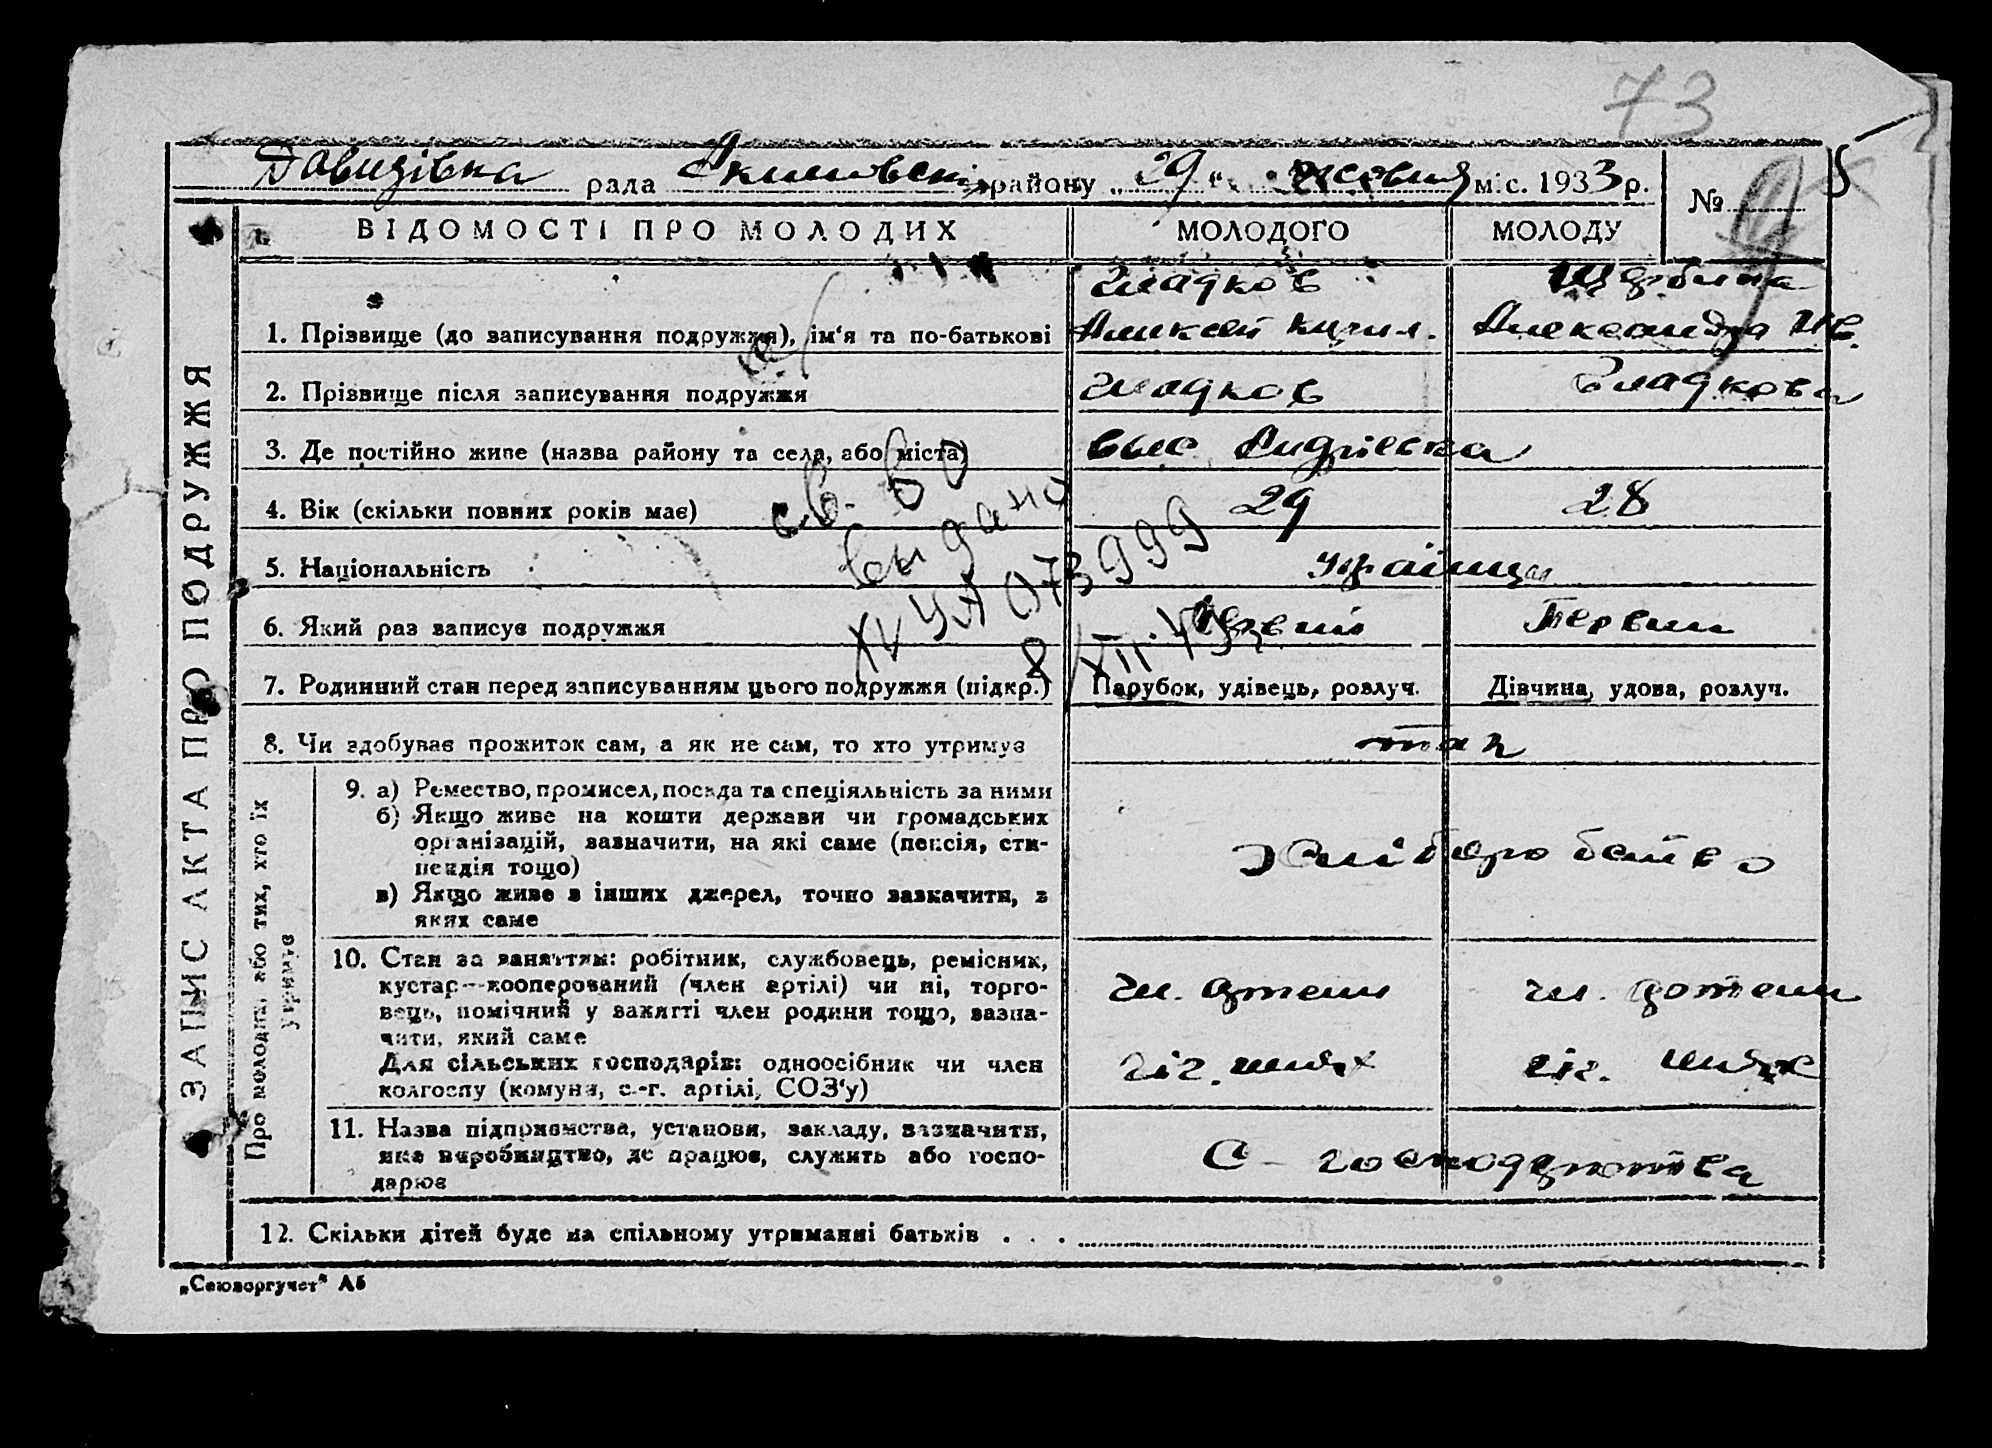 73
Давидівка рада Якимовськ району „29“ жовтня міс. 1933 р. №
ЗАПИС АКТА ПРО ПОДРУЖЖЯ
ВІДОМОСТІ ПРО МОЛОДИХ МОЛОДОГО МОЛОДУ
Гладков Щербина
1. Прізвище (до записування подружжя), ім‘я та по-батькові Аликсей Кирил. Александра Ів.
2. Прізвище після записування подружжя Гладков Гладкова
3. Де постійно живе (назва району та села, або міста) выс
4. Вік (скільки повних років має) 29 28
св-во
видано
5. Національність українці
XV УЛ 073999
6. Який раз записує подружжя Первий Первий
8/XII
7. Родинний стан перед записуванням цього подружжя (підкр.) Парубок, удівець, розлуч. Дівчина, удова, розлуч.
8. Чи здобуває прожиток сам, а як не сам, то хто утримує так
Про молодих, або тих, хто їх утримує
9. а) Ремество, промисел, посада та спеціяльність за ними
б) Якщо живе на кошти держави чи громадських
організацій, зазначити, на які саме (пенсія, сти-
пендія тощо)
хліборобство
в) Якщо живе з інших джерел, точно зазначити, з
яких саме
10. Стан за заняттям: робітник, службовець, ремісник,
кустар—кооперований (член артілі) чи ні, торго- чл. артели чл. артели
вець, помічний у занятті член родини тощо, зазна-
чити, який саме
Для сільських господарів: одноосібник чи член
колгоспу (комуни, с.-г. артілі, СОЗ‘у)
11. Назва підприємства, установи, закладу, зазначити,
яке виробництво, де працює, служить або госпо- С-господарства
дарює
12. Скільки дітей буде на спільному утриманні батьків . . .
„Союзоргучет“ А5